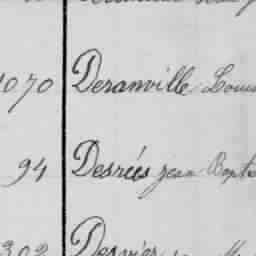 1070 Deranville Louis
94 Desrées jean Bapti
302 Dervier